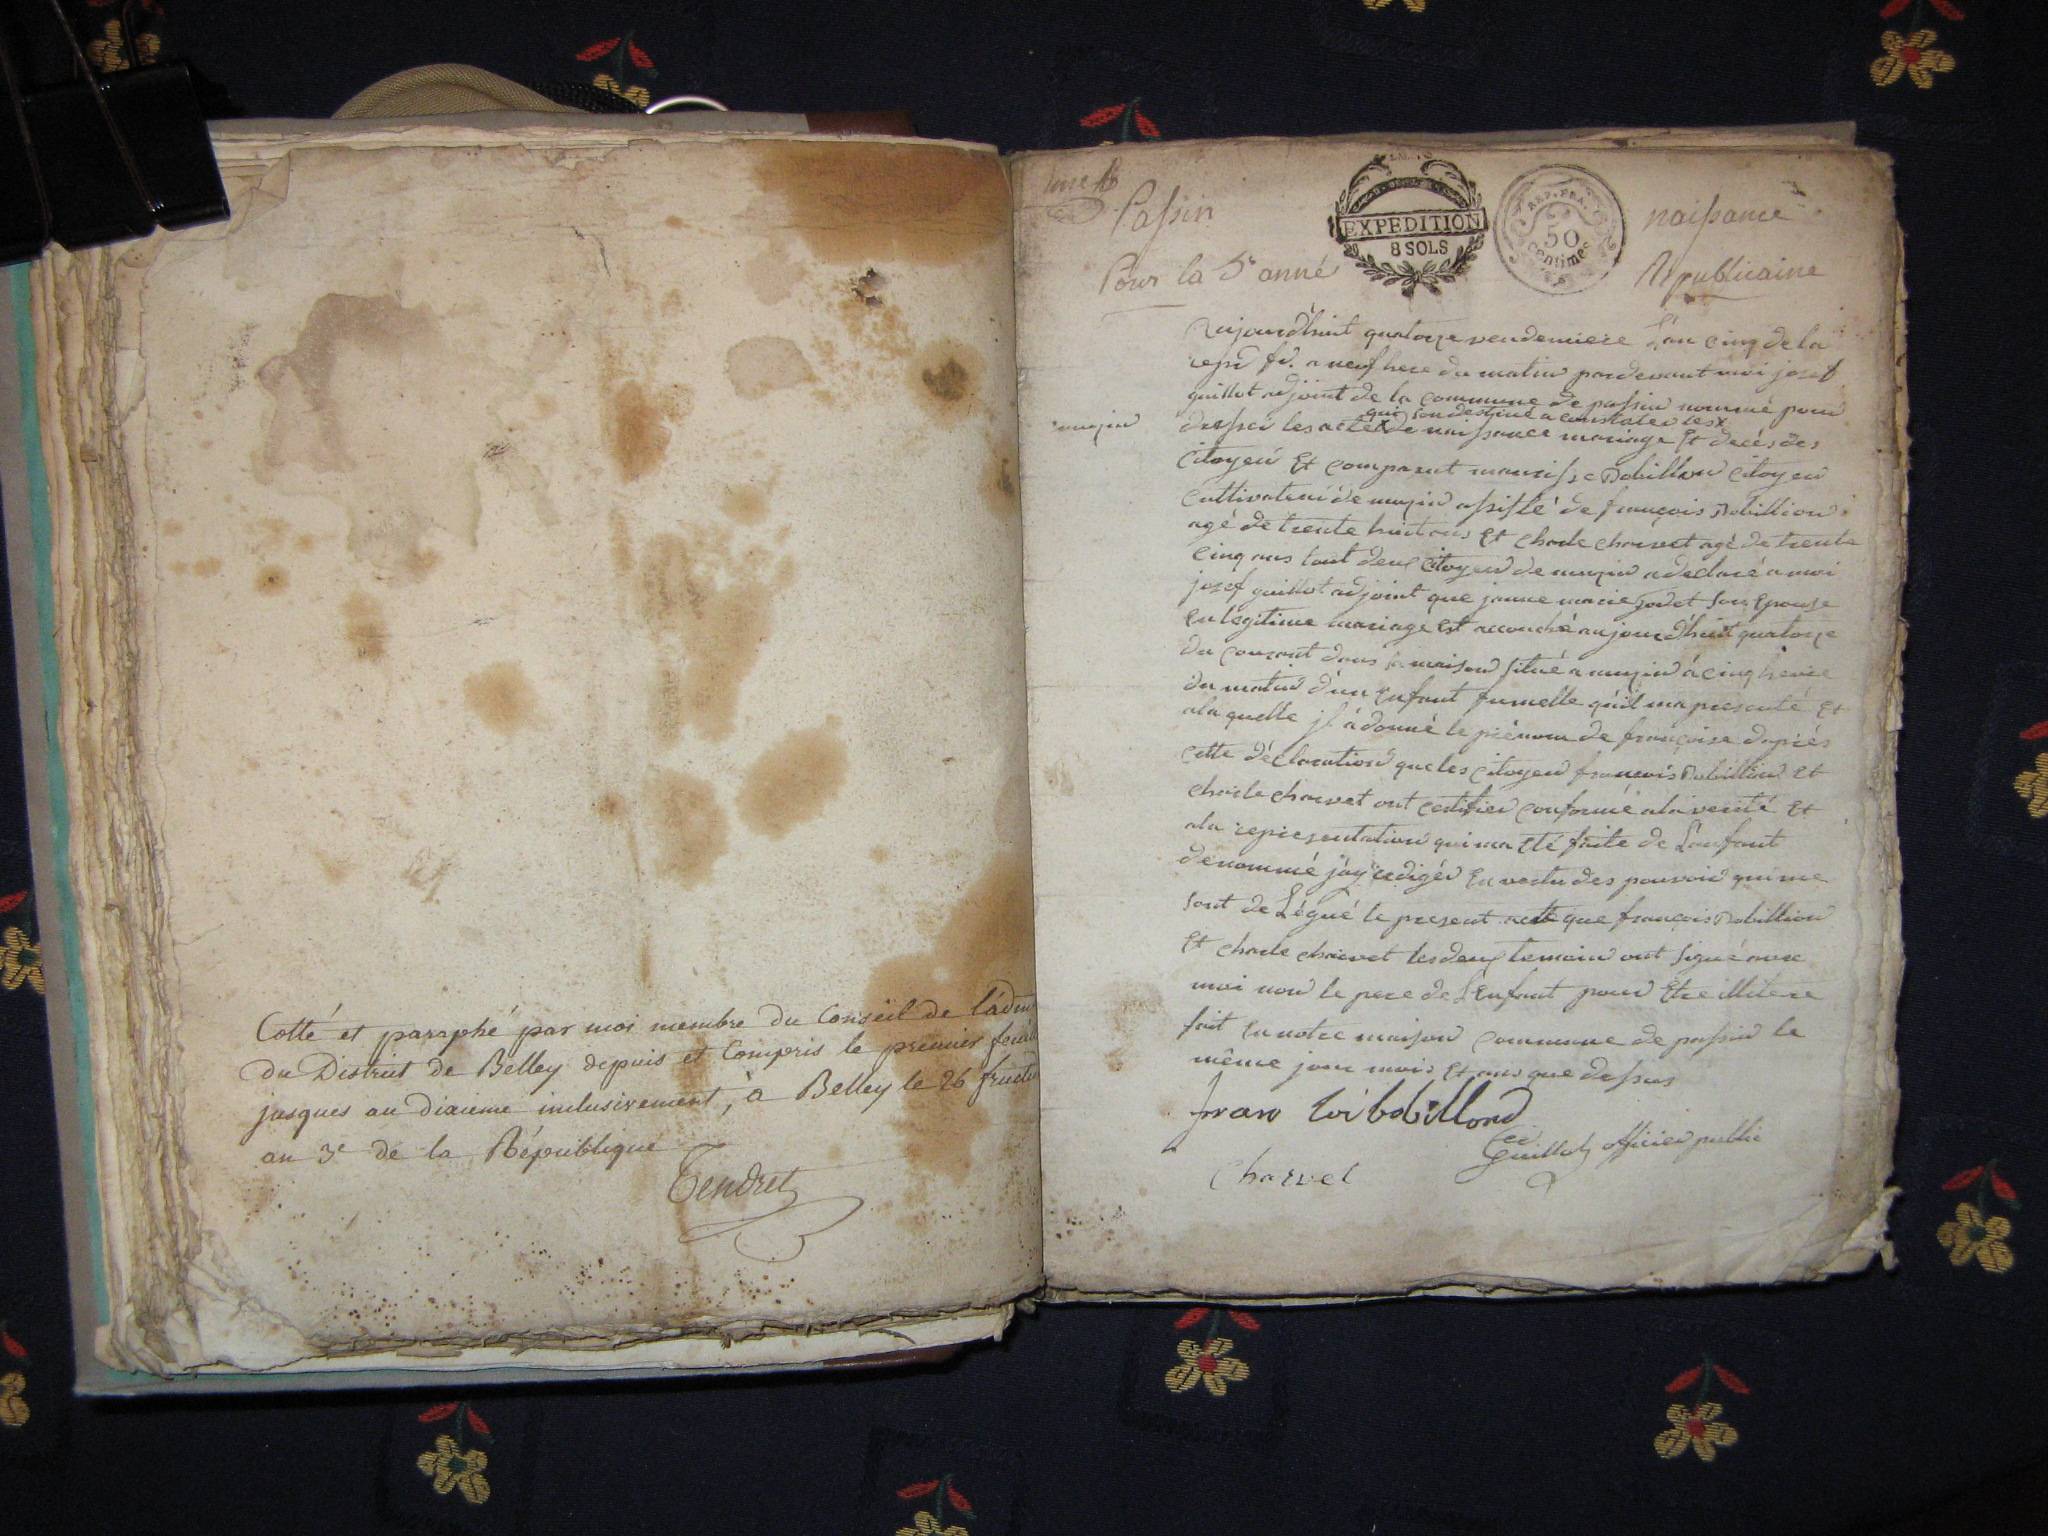 Cotté et paraphé par moi membre du Conseil de l'adm
du District de Belley depuis et Compris le premier feuill
jusques au dixieme inclusivement, à Belley le 26 fructi
an 3e de la République
Tendret
Passin
EXPEDITION
8 SOLS
REP. FRA.
50
centimes
naissance
Pour la 5e anné Republicaine
aujourd'huit quatorze vendemiere L'an cinq de la
a neuf here du matin pardevant moi josef
guillot adjoint de la commune de passin nommé pour
qui son destiné a constater les
dresser les acte de naissance mariage Et decés des
citoyen Et comparut maurisse Bobillion citoyen
cultivateur de muzin assisté de françois Bobillion
agé de trente huit ans Et charle charvet agé de trente
cinq ans tout deux citoyen de muzin a declaré a moi
josef guillot adjoint que janne marie son Epouse
En legitime mariage Est accouché aujourd'huit quatorze
du courant dans sa maison situé a muzin à cinq heure
du matin d'un Enfant fumelle qu'il ma presenté Et
ala quelle jl à donné le prénom de françoise daprés
cette déclaration que les citoyen françois Bobillion Et
charle charvet ont certifier conforme ala verité Et
ala representation qui ma Eté faite de L'anfant
denommé j'ay redigér En vertu des pouvoir qui me
sont de Légué le present acte que françois Bobillion
Et charle charvet les deux temoin ont signé avec
moi non le pere de L'Enfant pour Etre illitere
fait En notre maison commune de passin le
même jour mois Et ans que dessus
fran soi bobillond
Guillot officier public
charvet